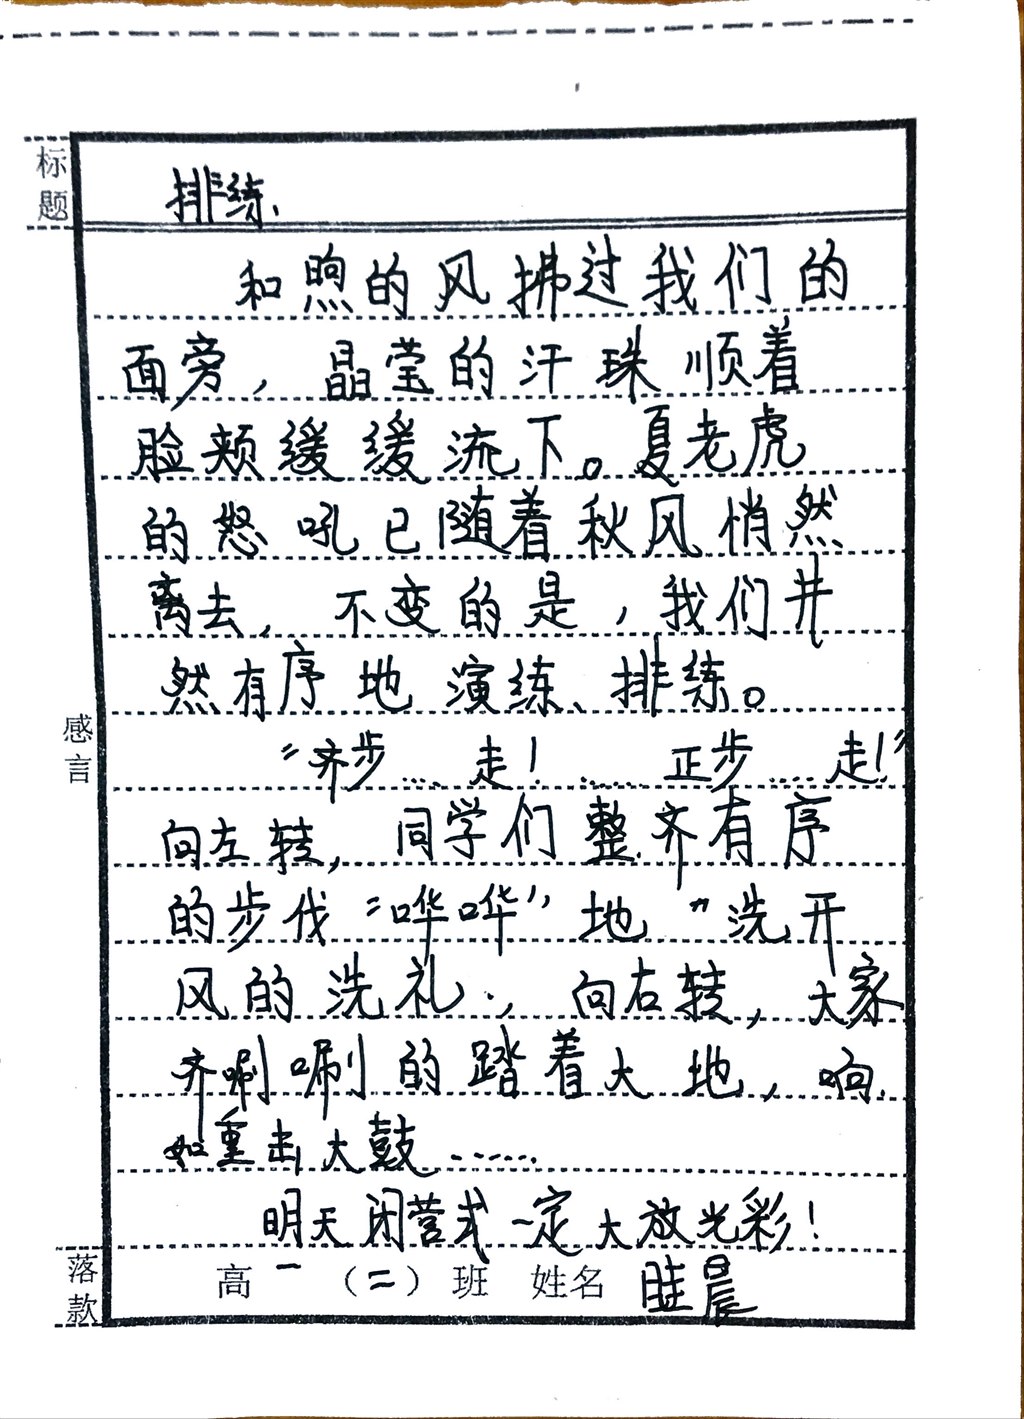 标题
排练.
和煦的风拂过我们的
面旁，晶莹的汗珠顺着
脸颊缓缓流下。夏老虎
的怒吼已随着秋风悄然
离去，不变的是，我们井
然有序地演练、排练。
感言
“齐步……走！……正步……走！”
向左转，同学们整齐有序
的步伐“哗哗”地”洗开
风的洗礼.，向右转，大家
齐唰唰的踏着大地，响
如重击大鼓……
明天闭营式一定大放光彩！
落款
高一（二）班 姓名 眭晨